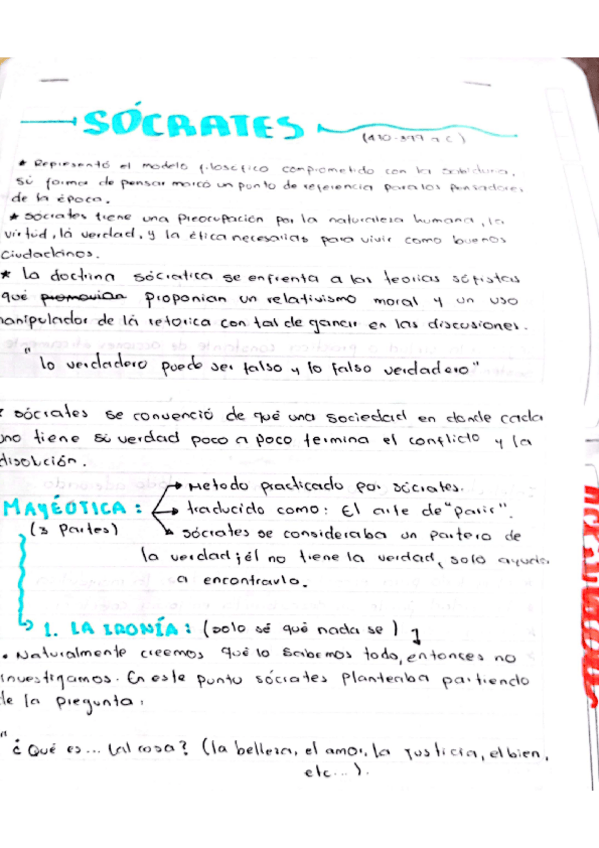 SÓCRATES
* Representó el modelo filosófico comprometido con la sabiduria,
sú forma de pensar marcó un punto de referencia para los pensadores
de la época.
* Sócrates tiene una preocupación por la naturaleza humana, la
virtud, la verdad, y la ética necesarias para vivir como buenos
ciudadanos.
* la doctrina sócratica se enfrenta a las teorias sófistas
qué promovian proponian un relativismo moral y un uso
manipulador de la retorica con tal de ganar en las discusiones.
"lo verdadero puede ser falso y lo falso verdadero"
* sócrates se convenció de qué una sociedad en donde cada
uno tiene sú verdad poco a poco termina el conflicto y la
disolución.
MAYÉOTICA: → Metodo practicado por sócrates.
(3 partes) → traducido como: El arte de "parir".
→ sócrates se consideraba un partero de
la verdad; él no tiene la verdad, solo ayuda
a encontrarla.
1. LA IRONÍA: (solo sé qué nada se)
• Naturalmente creemos qué lo sabemos todo, entonces no
investigamos. En este punto sócrates planteaba partiendo
de la pregunta:
"¿Qué es... tal cosa? (la belleza, el amor, la Justicia, el bien,
etc...).